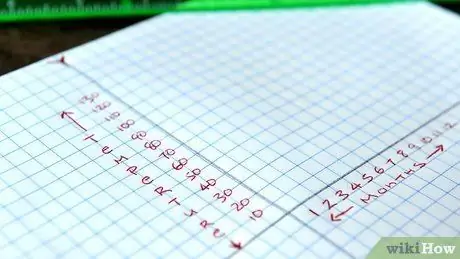 130 120 110 100 90 80 70 60 50 40 30 20 10
TEMPERATURE
1 2 3 4 5 6 7 8 9 10 11 12
MONTHS
wikiHow